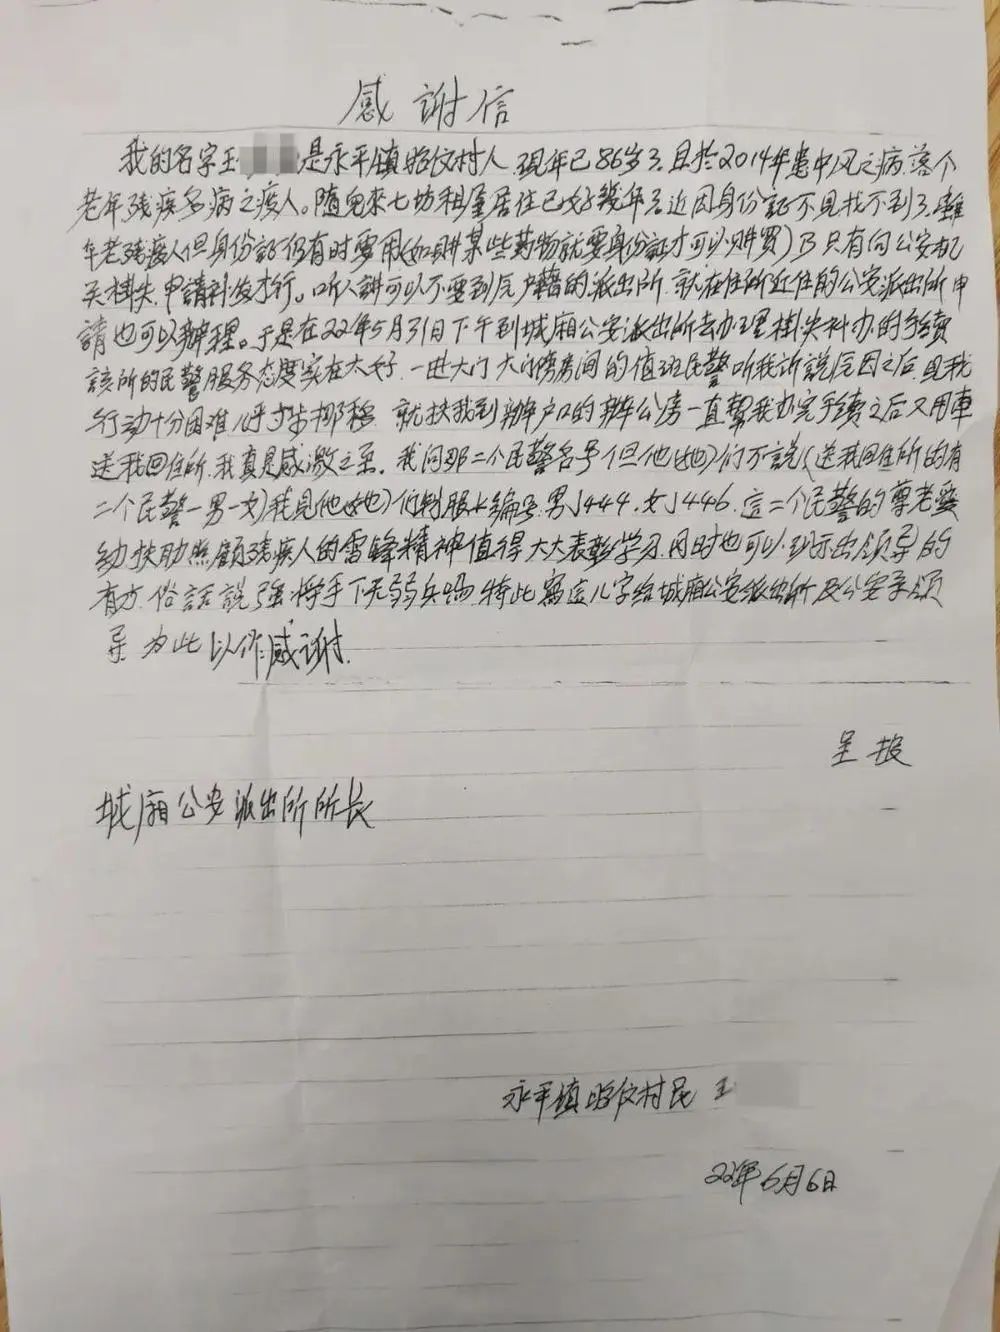 感谢信
我的名字王 是永平镇昭仪村人，现年已86岁了，且於2014年患中风之病，落个
老年残疾多病之疾人。随儿來七坊租屋居住已好幾年了，近因身份証不見找不到了，雖
年老残疾人但身份証仍有时需用（如購某些药物就要身份証才可以购買）乃只有向公安机
关掛失，申請补发才行。听人講可以不要到原户籍的派出所，就在住所近住的公安派出所申
請也可以辦理。于是在22年5月31日下午到城厢公安派出所去办理掛失补办的手續
該所的民警服务态度实在太好，一进大门大门傍房间的值班民警听我訴說原因之后，見我
行动十分困难几乎寸步挪移，就扶我到辦户口的辦公房一直幫我办完手续之后又用車
送我回住所，我真是感激之至。我问那二个民警名号但他（她）们不說（送我回住所的有
二个民警一男一女）我見他（她）们制服上编号，男J444，女J446，這二个民警的尊老愛
幼扶助照顧残疾人的雷锋精神值得大大表彰学习，同时也可以显示出领导的
有方，俗話說强将手下无弱兵嗎，特此寫這几字给城厢公安派出所及公安系领
导，为此以作感谢。
呈报
城厢公安派出所所长
永平镇昭仪村民 王
22年6月6日